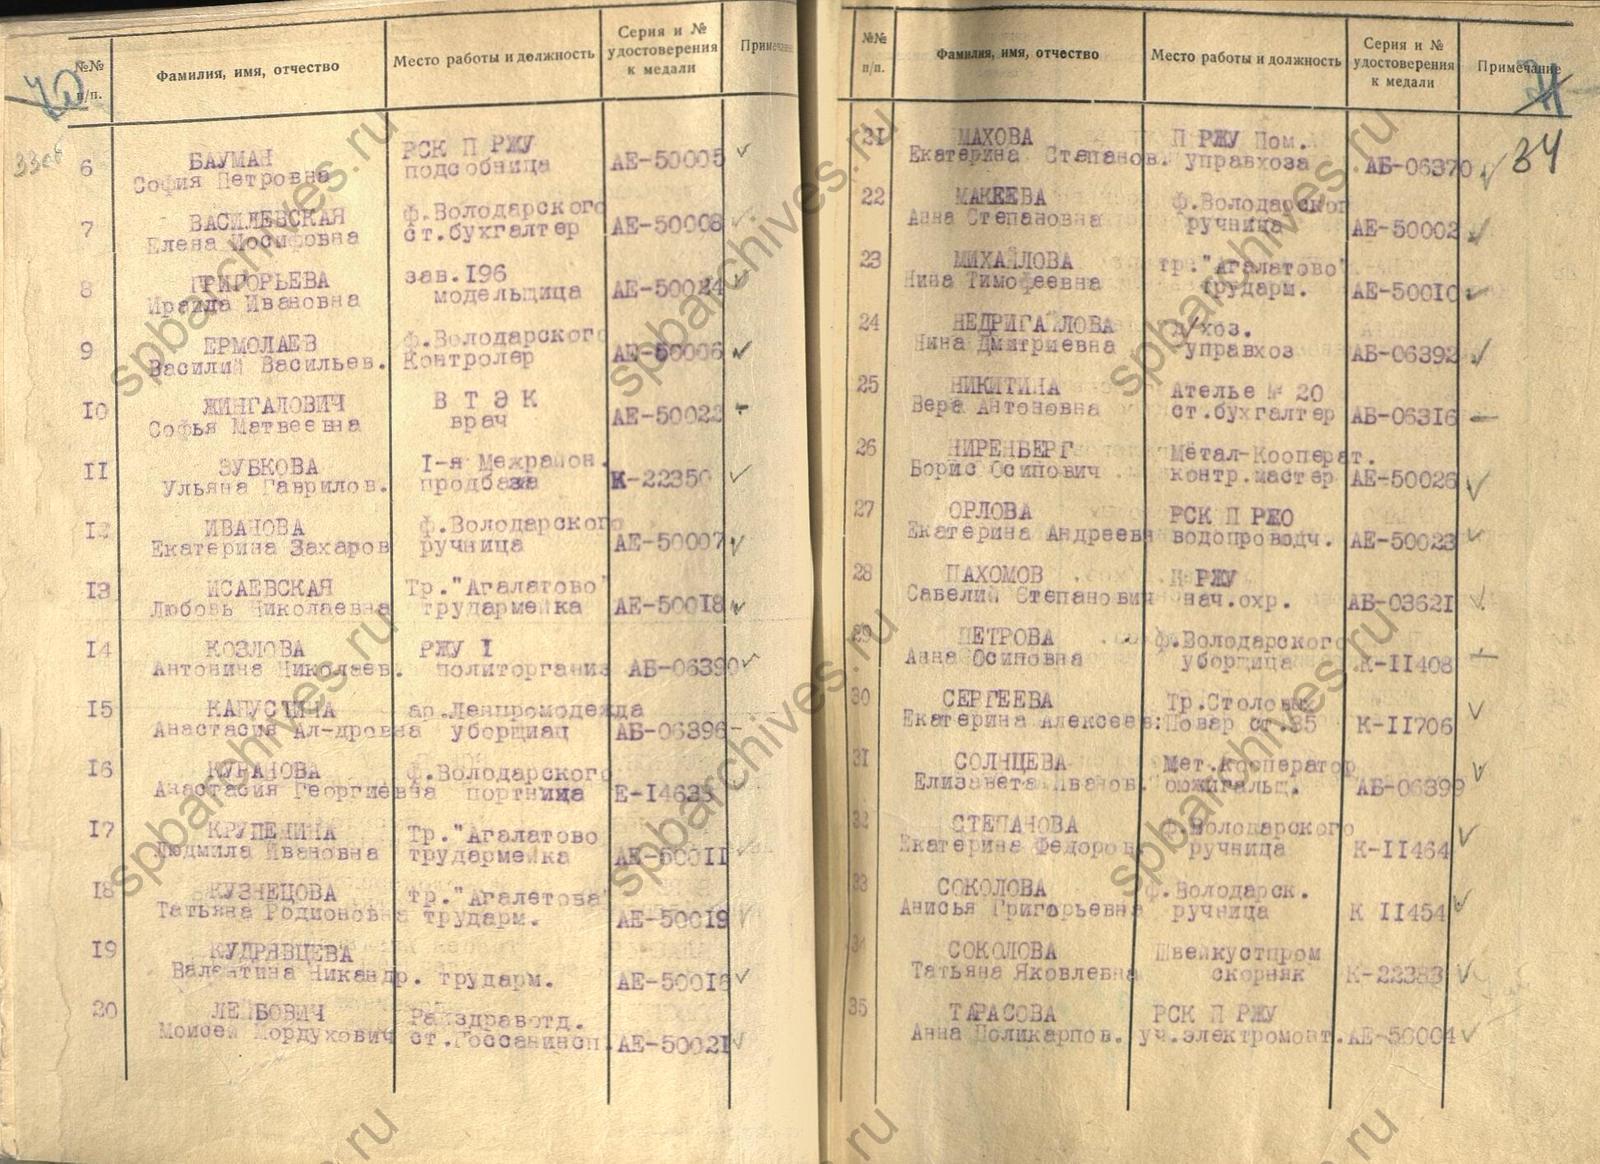 №№ п/п.
Фамилия, имя, отчество
Место работы и должность
Серия и № удостоверения к медали
70
33об
6 БАУМАН РСК П РЖУ
София Петровна подсобница АЕ-50005
7 ВАСИЛЕВСКАЯ ф.Володарского
Елена Иосифовна ст.бухгалтер АЕ-50008
8 ГРИГОРЬЕВА зав.I96
Ираида Ивановна модельщица АЕ-50024
9 ЕРМОЛАЕВ ф.Володарского
Василий Васильев. Контролер АЕ-50006
I0 ЖИНГАЛОВИЧ В Т Э К
Софья Матвеевна врач АЕ-50022
II ЗУБКОВА I-я Межрайон.
Ульяна Гаврилов. продбаза К-22350
I2 ИВАНОВА ф.Володарского
Екатерина Захаров ручница АЕ-50007
I3 ИСАЕВСКАЯ Тр."Агалатово"
Любовь Николаевна трудармейка АЕ-500I8
I4 КОЗЛОВА РЖУ I
Антонина Николаев. политорганиз АБ-06390
I5 КАПУСТИНА ар.Ленпромодежда
Анастасия Ал-дровна уборщиац АБ-06396
I6 КУРАНОВА ф.Володарского
Анастасия Георгиевна портница Е-I463
I7 Тр."Агалатово
Людмила Ивановна трудармейка АЕ-500II
I8 КУЗНЕЦОВА тр."Агалетова"
Татьяна Родионовна трударм. АЕ-500I9
I9 КУДРЯВЦЕВА
Валентина Никандр. трударм. АЕ-500I6
20 ЛЕЙБОВИЧ Райздравотд.
Моисей Мордухович ст.Госсанинсп. АЕ-5002I
№№ п/п.
Фамилия, имя, отчество
Место работы и должность
Серия и № удостоверения к медали
Примечание
71
34
2I МАХОВА П РЖУ Пом.
Екатерина Степанов. управхоза АБ-06370
22 МАКЕЕВА ф.Володарског
Анна Степановна ручница АЕ-50002
23 МИХАЙЛОВА тр."Агалатово"
Нина Тимофеевна трударм. АЕ-500I0
24 НЕДРИГАЙЛОВА д/хоз.
Нина Дмитриевна управхоз АБ-06392
25 НИКИТИНА Ателье № 20
Вера Антоновна ст.бухгалтер АБ-063I6
26 НИРЕНБЕРГ Метал-Кооперат.
Борис Осипович контр.мастер АЕ-50026
27 ОРЛОВА РСК П РЖО
Екатерина Андреевн водопроводч. АЕ-50023
28 ПАХОМОВ П РЖУ
Савелий Степанович нач.охр. АБ-0362I
29 ПЕТРОВА ф.Володарского
Анна Осиповна уборщица К-II408
30 СЕРГЕЕВА Тр.Столовых
Екатерина Алексеев: Повар ст.35 К-II706
3I СОЛНЦЕВА Мет.кооператор
Елизавета Иванов. АБ-06399
32 СТЕПАНОВА ф.Володарского
Екатерина Федоров ручница К-II464
33 СОКОЛОВА ф.Володарск.
Анисья Григорьевна ручница К II454
34 СОКОЛОВА Швейкустпром
Татьяна Яковлевна скорняк К-22383
35 ТАРАСОВА РСК П РЖУ
Анна Поликарпов. уч.электромонт. АЕ-50004
spbarchives.ru